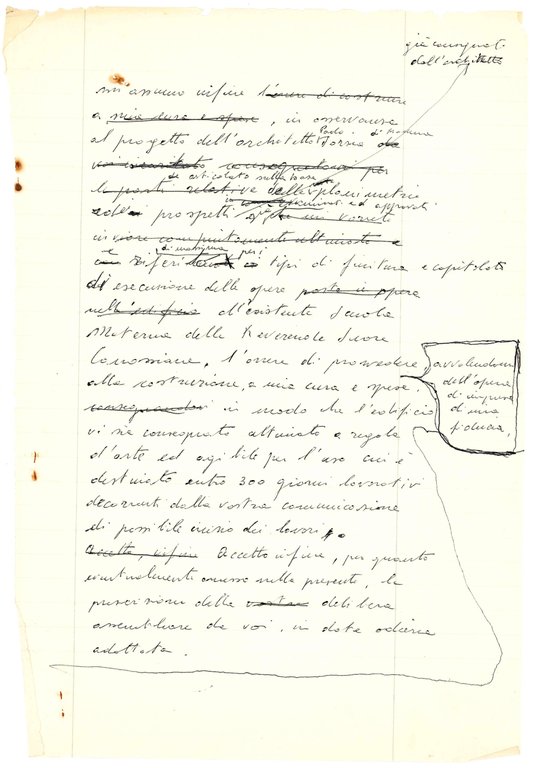 già consegnat.
dall'architetto
m'assumo infine l'onere di costruire
a mia cura e spese, in osservanza
Paolo di Mantova
al progetto dell'architetto
consegnatomi per
di articolato sulla base
le parti relative delle planimetrie
ed approvati
e dei prospetti
ultimato e
di massima per
e riferit i tipi di finitura e capitolato
di esecuzione delle opere poste in opera
nell'edificio all'esistente Scuola
Materna delle Reverende Suore
Canossiane, l'onere di provvedere
alla costruzione, a mia cura e spese,
avvalendomi
dell'opera
di impresa
di mia
fiducia,
in modo che l'edificio
vi sia consegnato ultimato a regola
d'arte ed agibile per l'uso cui è
destinato entro 300 giorni lavorativi
decorrenti dalla vostra comunicazione
di possibile inizio dei lavori.
Accetto, infine Accetto infine, per quanto
eventualmente omesso nella presente, la
precisione della vostra delibera
assembleare da voi, in data odierna
adottata.